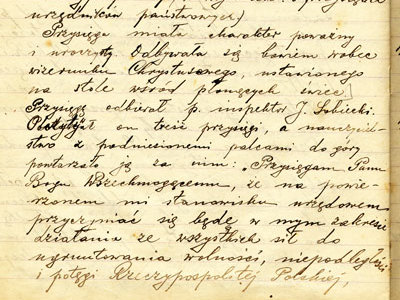 urzędników państwowych)
Przysięga miała charakter poważny
i uroczysty. Odbywała się bowiem wobec
wizerunku Chrystusowego, ustawionego
na stole wśród płonących świec.]
Przysięgę odbierał p. inspektor J. Sobiecki.
on treść przysięgi, a nauczyciel-
stwo z podniesionemi palcami do góry
powtarzało ją za nim: „Przysięgam Panu
Bogu Wszechmogącemu, że na powie-
rzonem mi stanowisku urzędowem
przyczyniać się będę w mym zakresie
działania ze wszystkich sił do
ugruntowania wolności, niepodległości
i potęgi Rzeczypospolitej Polskiej,